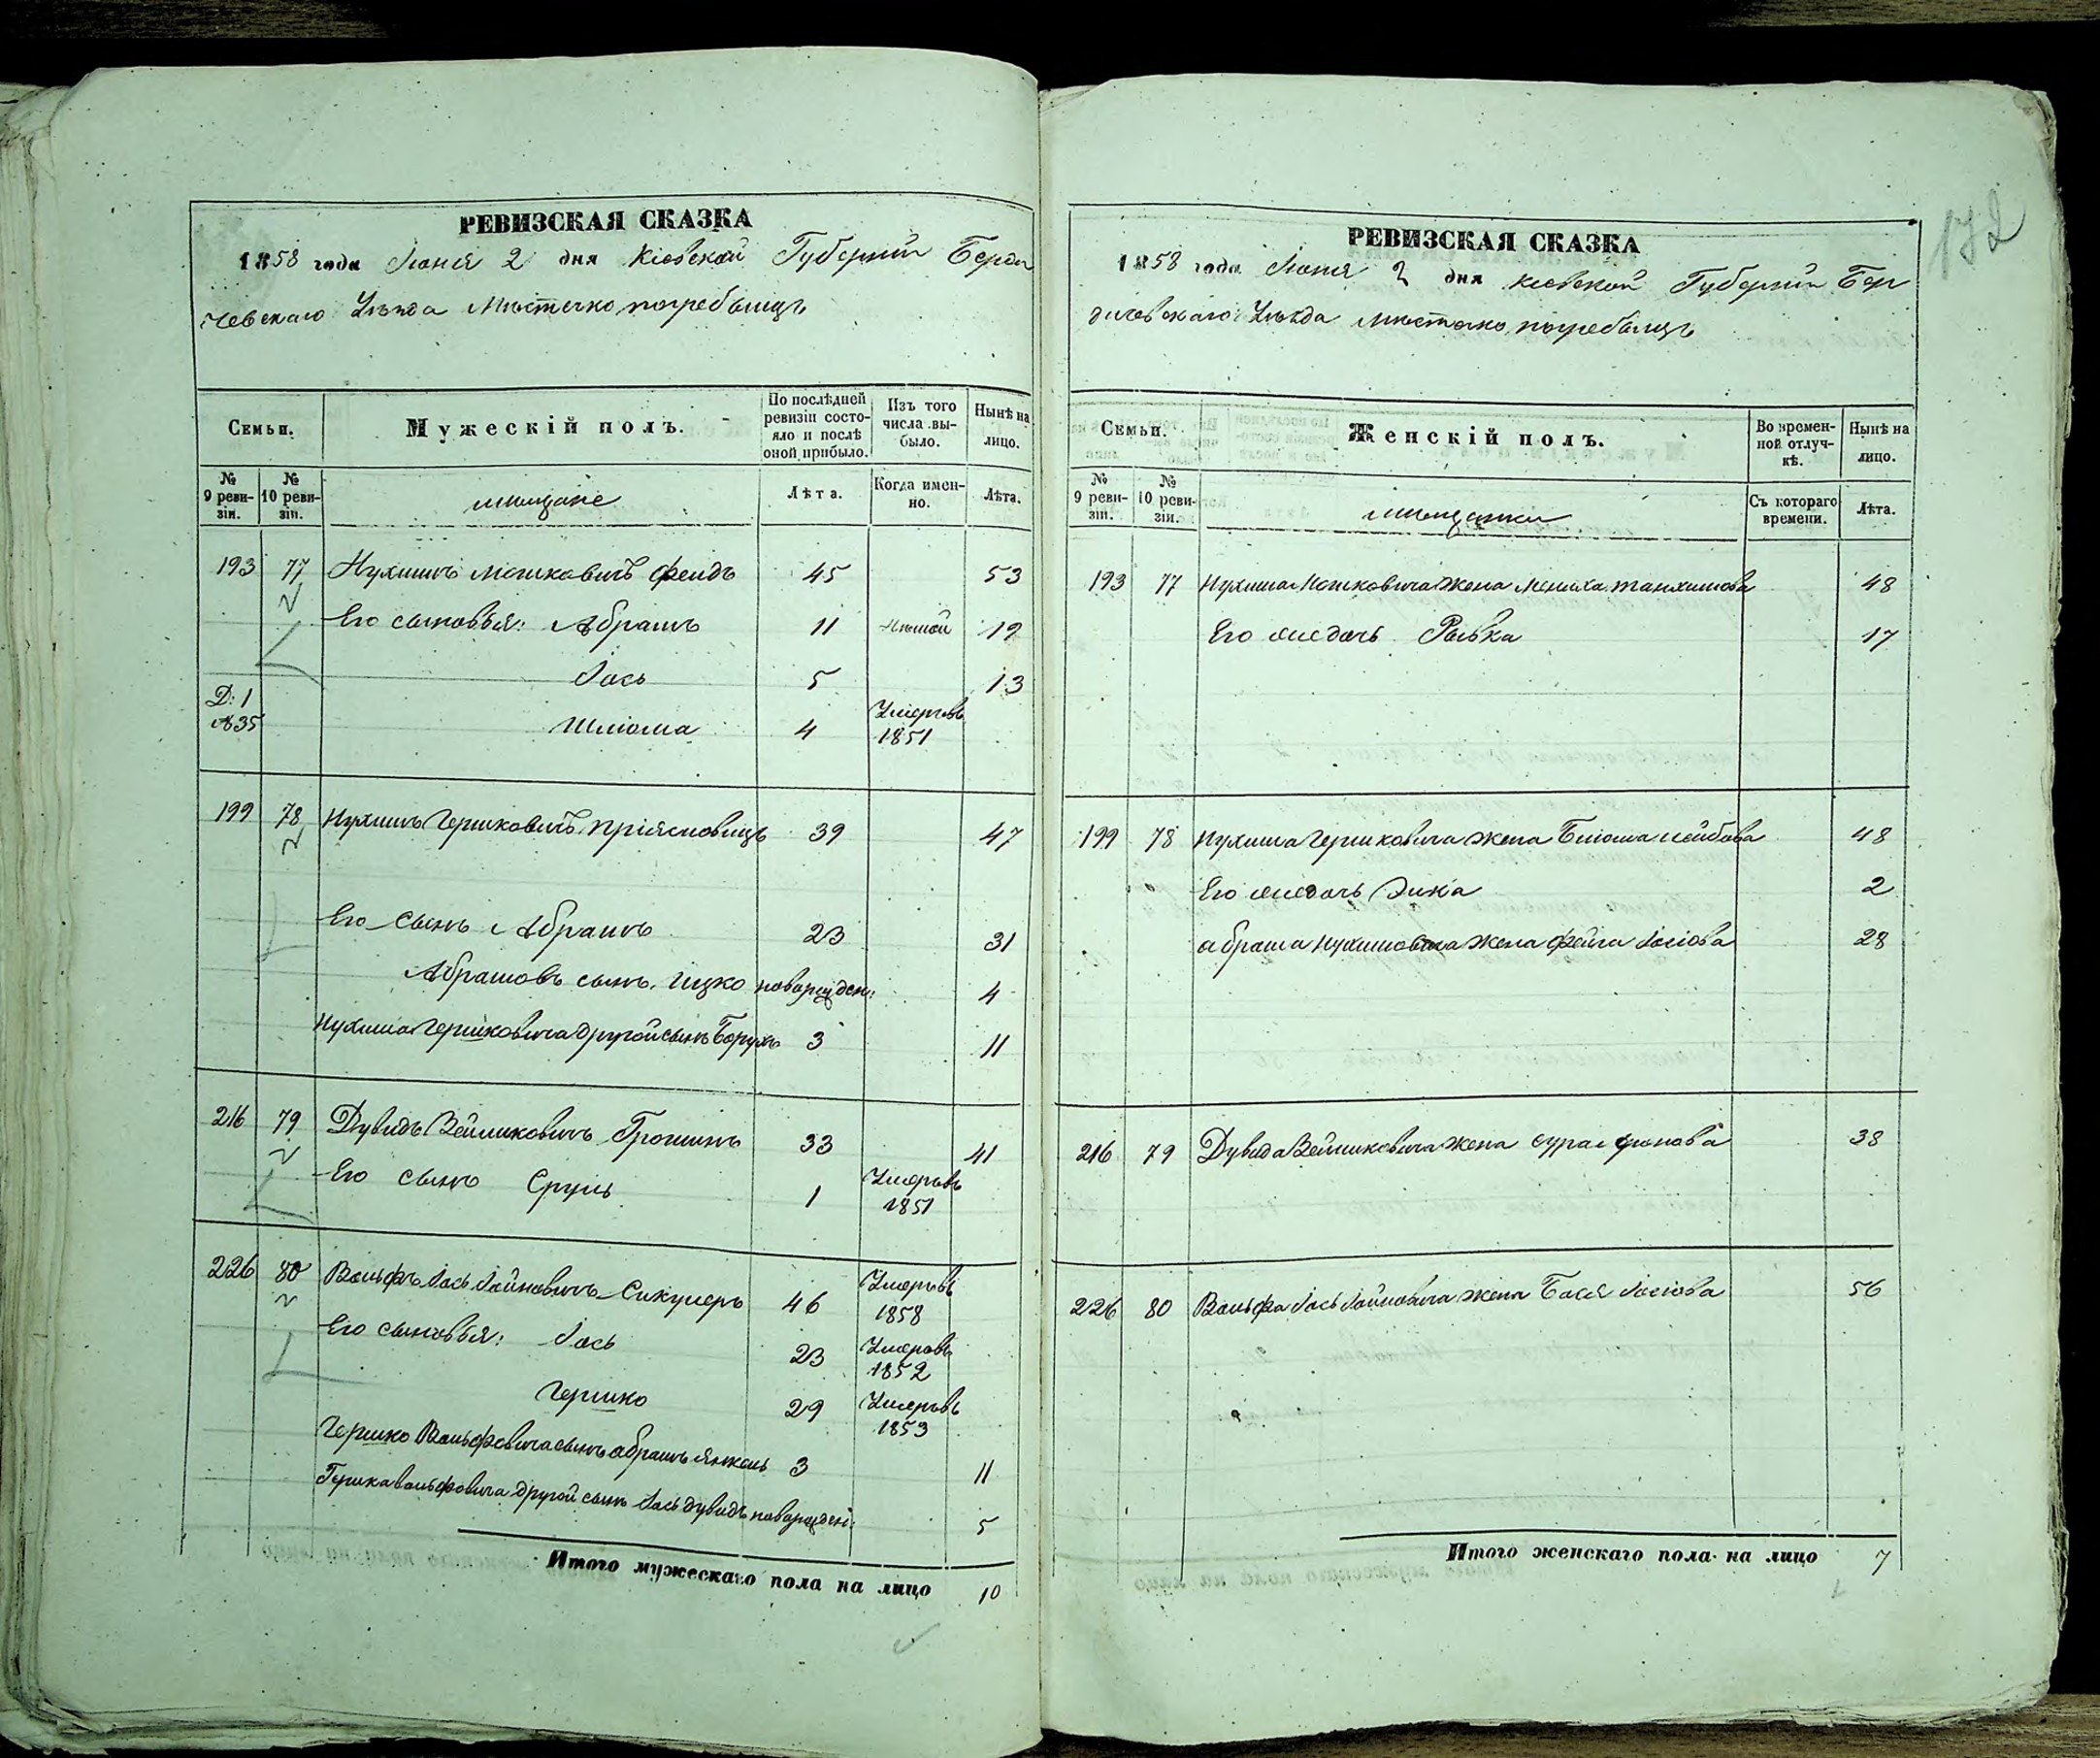 РЕВИЗСКАЯ СКАЗКА
1858 года Іюня 2 дня Кіевской Губерніи Берди
чевскаго Уѣзда Мѣстечко погребищъ
Семьи. Мужескій полъ. По послѣдней ревизіи состояло и послѣ оной прибыло. Изъ того числа выбыло. Нынѣ на лицо.
№ 9 ревизіи. № 10 ревизіи. мещане Лѣта. Когда именно. Лѣта.
193 77 Нухимъ Мошковичъ Фендъ 45 53
Его сыновья: Абрамъ 11 Нѣмой 19
Іось 5 13
Д: 1
№35 Шліома 4 Умеръ въ 1851
199 78 Нухимъ Гершковичъ Пріясновицъ 39 47
Его сынъ Абрамъ 23 31
Абрамовъ сынъ Ицко новорожден: 4
Нухима Гершковича другой сынъ Борухъ 3 11
216 79 Дувидъ Зейликовичъ Гронинъ 33 41
Его сынъ Сруль 1 Умеръ въ 1851
226 80 Вольфъ Іось Іойновичъ Сикулеръ 46 Умеръ въ 1858
Его сыновья: Іось 23 Умеръ въ 1852
Гершко 29 Умеръ въ 1853
Гершко Вольфовича сынъ абрамъ Янкель 3 11
Гершка вольфовича другой сынъ Іось дувидъ новорожден: 5
Итого мужескаго пола на лицо 10
172
РЕВИЗСКАЯ СКАЗКА
1858 года Іюня 2 дня Кіевской Губерніи Бер
дичевскаго Уѣзда Мѣстечко погребищъ
Семьи. Женскій полъ. Во временной отлучкѣ. Нынѣ на лицо.
№ 9 ревизіи. № 10 ревизіи. мещанки Съ котораго времени. Лѣта.
193 77 Нухима Мошковича жена Меняха Танхимова 48
Его дочь Ривка 17
199 78 Нухима Гершковича жена Блюма Лейбова 48
Его дочь Эика 2
абрама Нухимовича жена Фейга Іосіова 28
216 79 Дувида Зейликовича жена сура 38
226 80 Вольфа Іось Іойновича жена Бася Іосіова 56
Итого женскаго пола на лицо 7